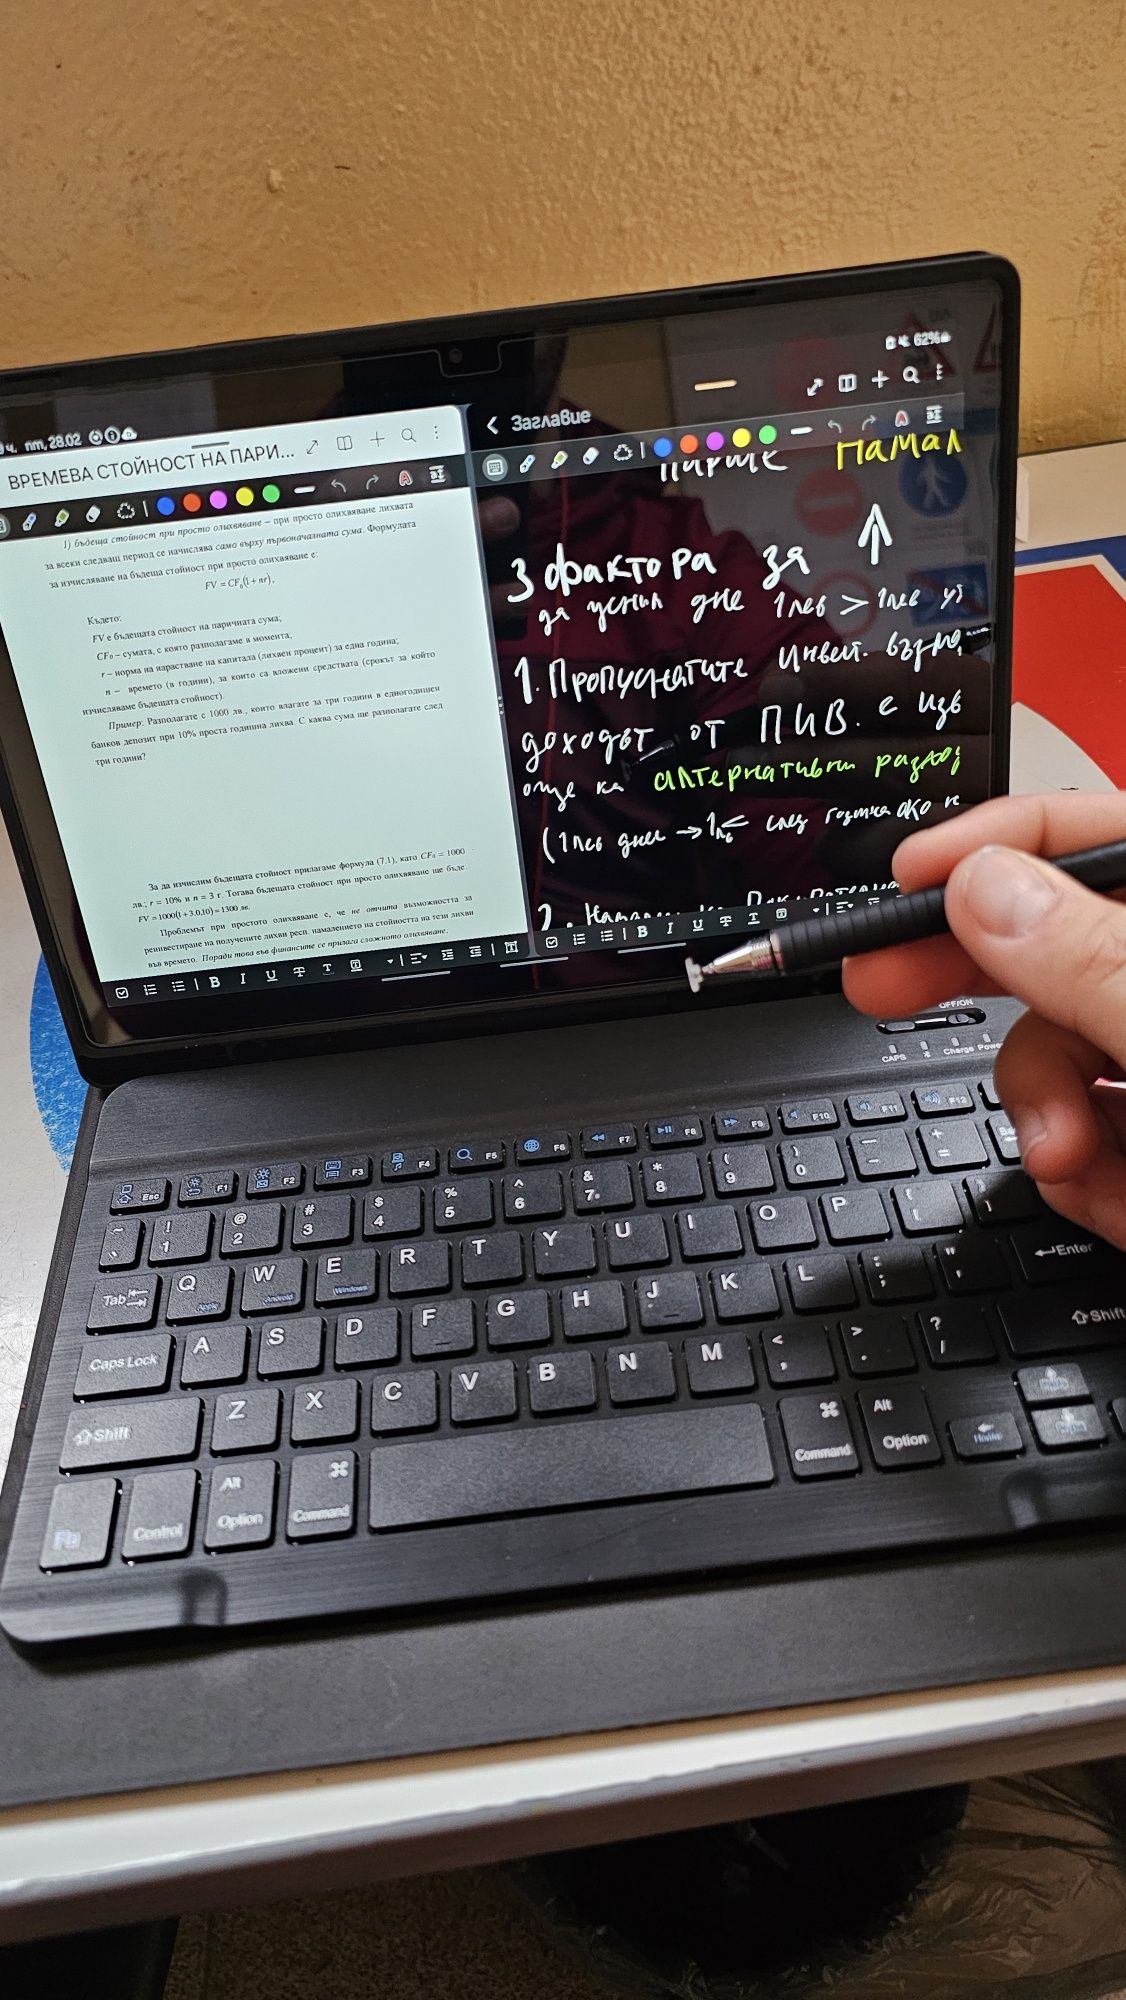 ч, пт, 28.02
62%
ВРЕМЕВА СТОЙНОСТ НА ПАРИ...
1) бъдеща стойност при просто олихвяване – при просто олихвяване лихвата
за всеки следващ период се начислява само върху първоначалната сума. Формулата
за изчисляване на бъдеща стойност при просто олихвяване е:
FV = CF₀(1 + nr),
Където:
FV е бъдещата стойност на паричната сума;
CF₀ – сумата, с която разполагаме в момента;
r – норма на нарастване на капитала (лихвен процент) за една година;
n – времето (в години), за които са вложени средствата (срокът за който
изчисляваме бъдещата стойност).
Пример: Разполагате с 1000 лв., които влагате за три години в едногодишен
банков депозит при 10% проста годишна лихва. С каква сума ще разполагате след
три години?
За да изчислим бъдещата стойност прилагаме формула (7.1), като CF₀ = 1000
лв.; r = 10% и n = 3 г. Тогава бъдещата стойност при просто олихвяване ще бъде:
FV = 1000(1+3.0,10) = 1300 лв.
Проблемът при простото олихвяване е, че не отчита възможността за
реинвестиране на получените лихви респ. намалението на стойността на тези лихви
във времето. Поради това във финансите се прилага сложното олихвяване.
B I U T T
Заглавие
намал
3 фактора за ↑
да днес 1 лев > 1 лев
1. Пропуснатите инвест.
доходът от ПИВ. е
още ка алтернативни разход
(1 лев днес → 1 лв < след година ако
2.
B I U T T
OFF/ON
CAPS Charge Power
Esc F1 F2 F3 F4 F5 F6 F7 F8 F9 F10 F11 F12
~ ` ! 1 @ 2 # 3 $ 4 % 5 ^ 6 & 7 * 8 ( 9 ) 0 _ - + = Ba
Tab Q Apple W Android E Windows R T Y U I O P { [ } ]
Caps Lock A S D F G H J K L : ; " ' Enter
Shift Z X C V B N M < , > . ? / Shift
Fn Control Alt Option ⌘ Command ⌘ Command Alt Option Home